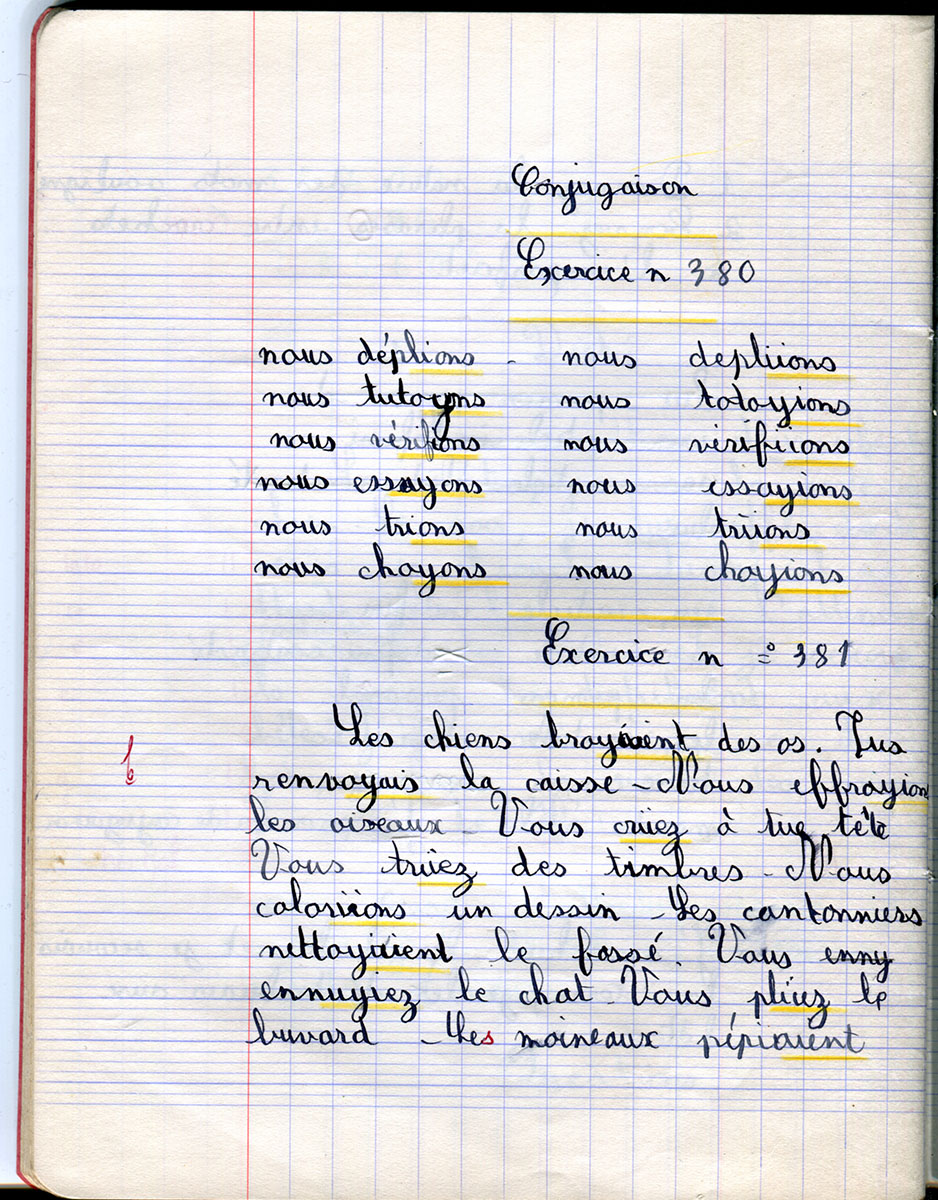 Conjugaison
Exercice n 380
nous déplions - nous depliions
nous tutoyons nous totoyions
nous vérifions nous vérifiions
nous essayons nous essayions
nous trions nous triions
nous choyons nous choyions
Exercice n° 381
Les chiens broyaient des os. Tus
renvoyais la caisse - Nous effrayion
les oiseaux - Vous criiez à tue tête
Vous triiez des timbres - Nous
coloriions un dessin - Les cantonniers
nettoyaient le fossé. Vous enny
ennuyiez le chat - Vous pliiez le
buvard - Les moineaux pépiaient